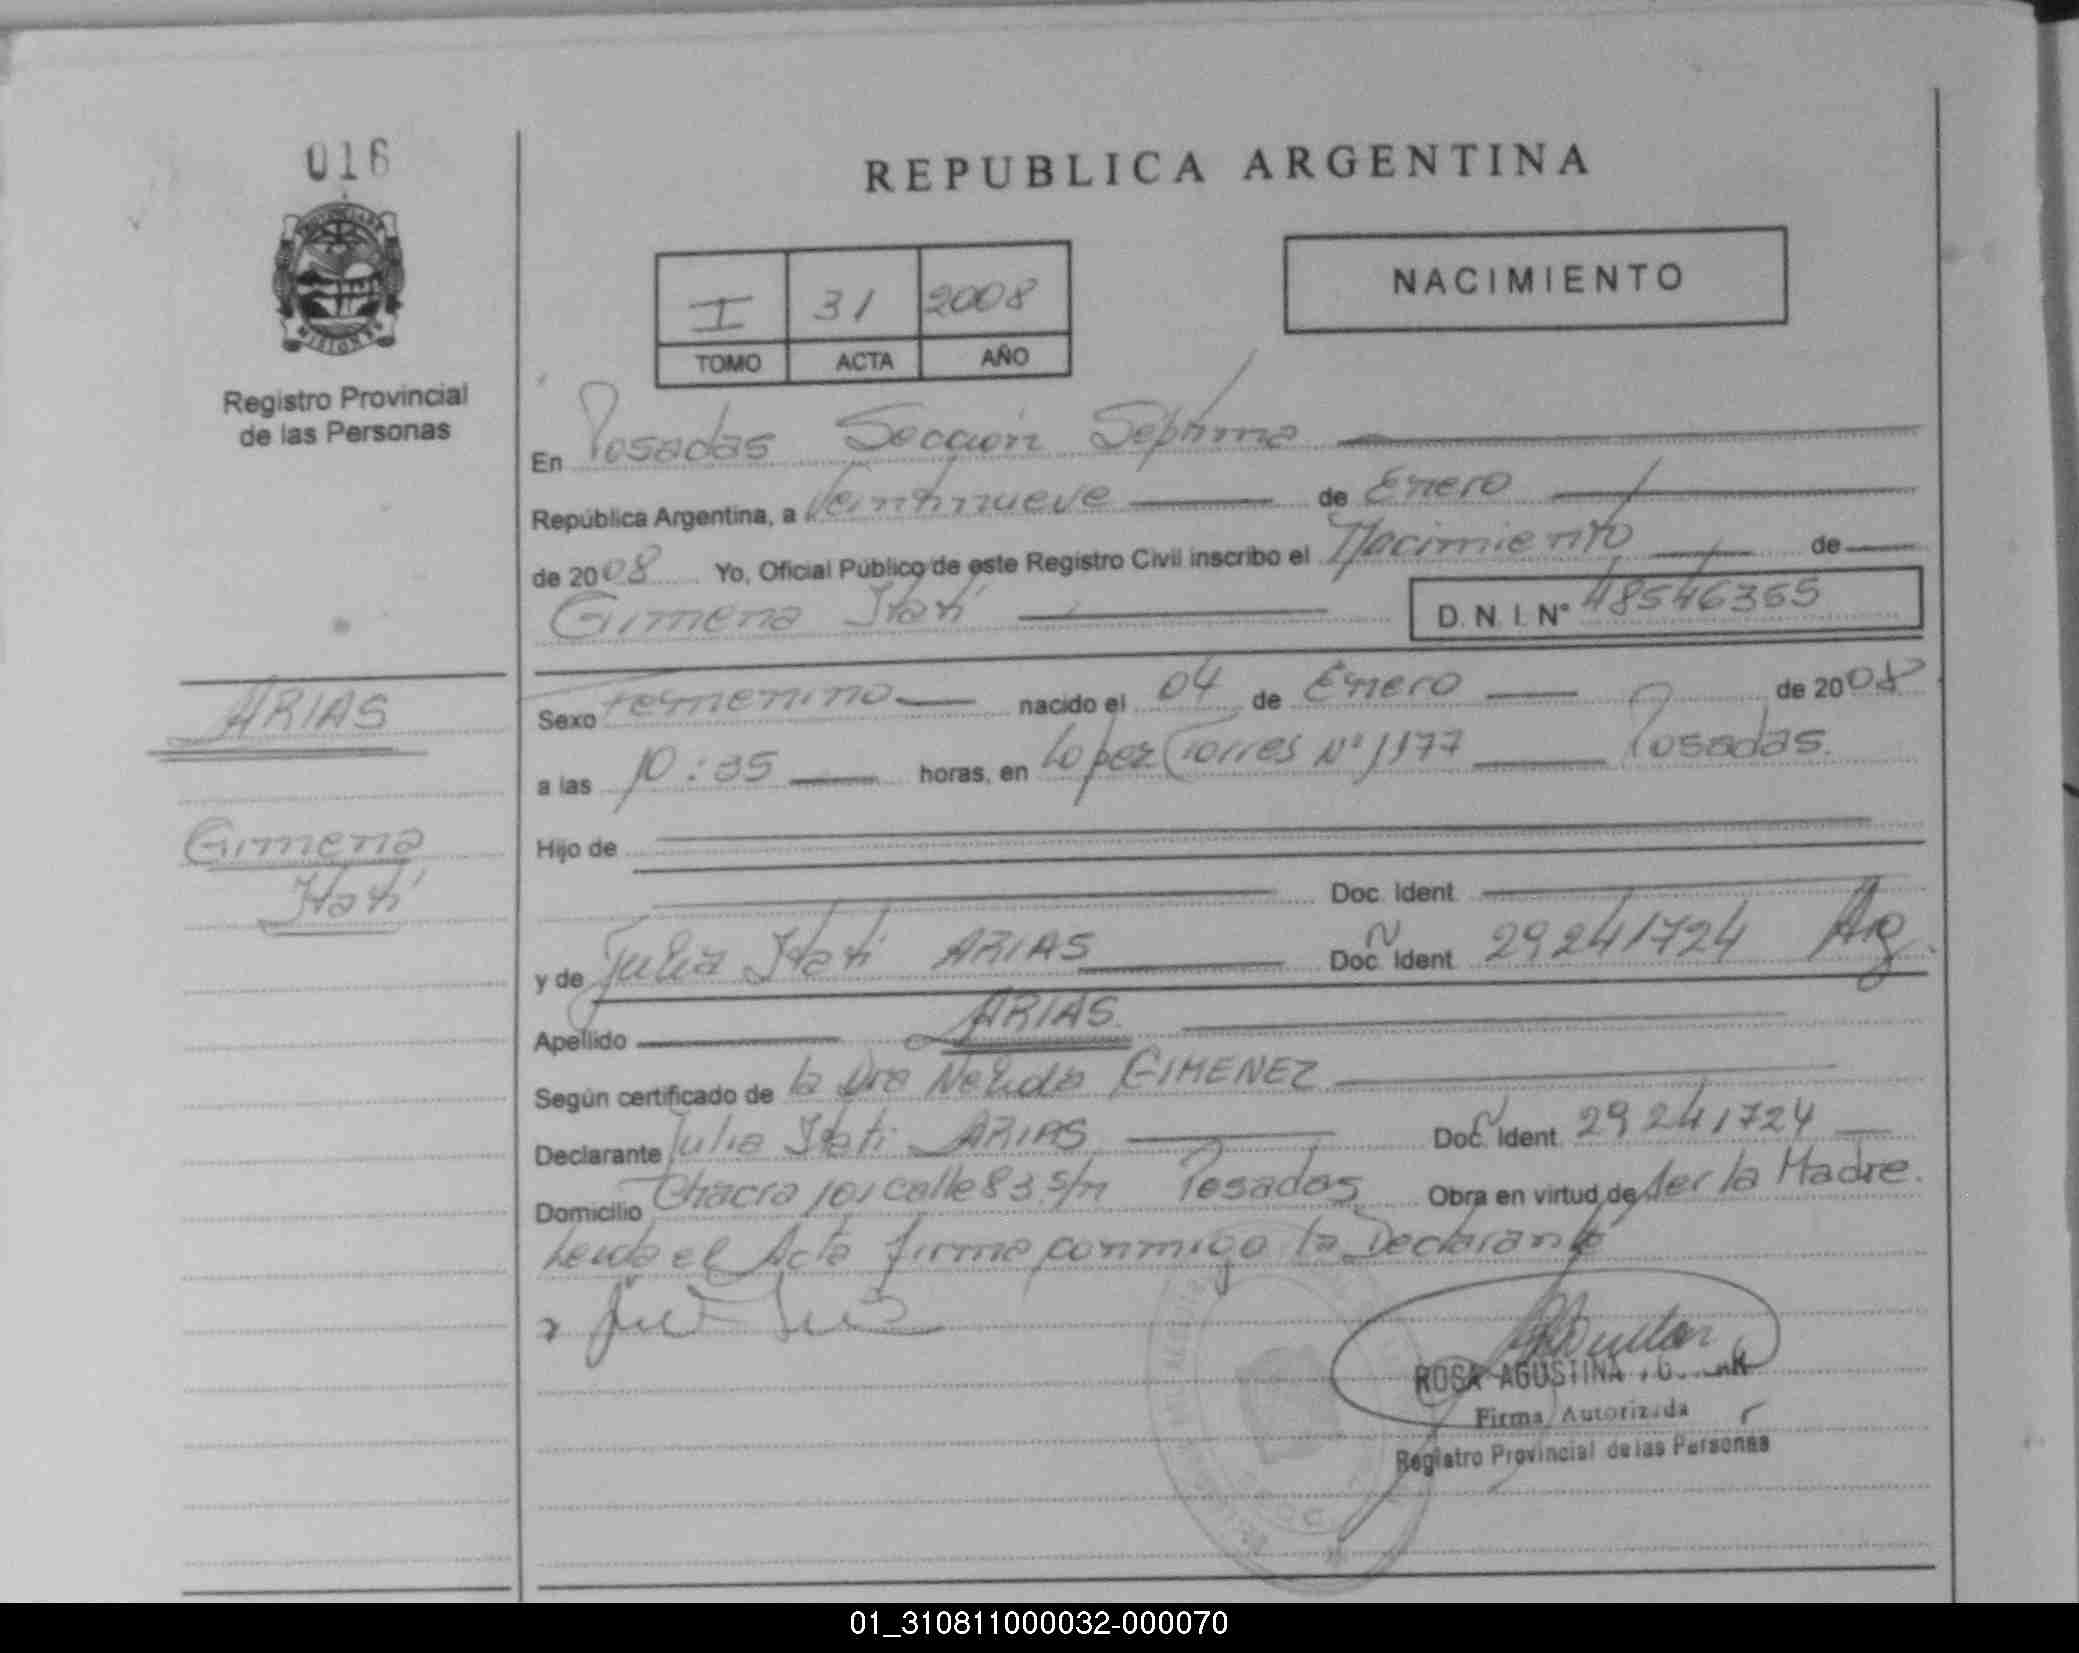 016
REPUBLICA ARGENTINA
NACIMIENTO
I 31 2008
TOMO ACTA AÑO
Registro Provincial
de las Personas
En Posadas Sección Séptima
República Argentina, a Veintinueve de Enero
de 2008 Yo, Oficial Público de este Registro Civil inscribo el Nacimiento de
Gimena Itatí D. N. I. N° 48546355
ARIAS
Gimena
Itatí
Sexo Femenino nacido el 04 de Enero de 2008
a las 10:35 horas, en Lopez Torres N° 1177 Posadas.
Hijo de
Doc. Ident.
y de Julia Itati ARIAS Doc. Ident. 29241724 Arg.
Apellido ARIAS
Según certificado de la Dra Nelida GIMENEZ
Declarante Julia Itati ARIAS Doc. Ident. 29241724
Domicilio Chacra 101 calle 83 s/n Posadas Obra en virtud de ser la Madre.
Leida el Acta firma conmigo la Declarante
ROSA AGUSTINA
Firma Autorizada
Registro Provincial de las Personas
01_310811000032-000070